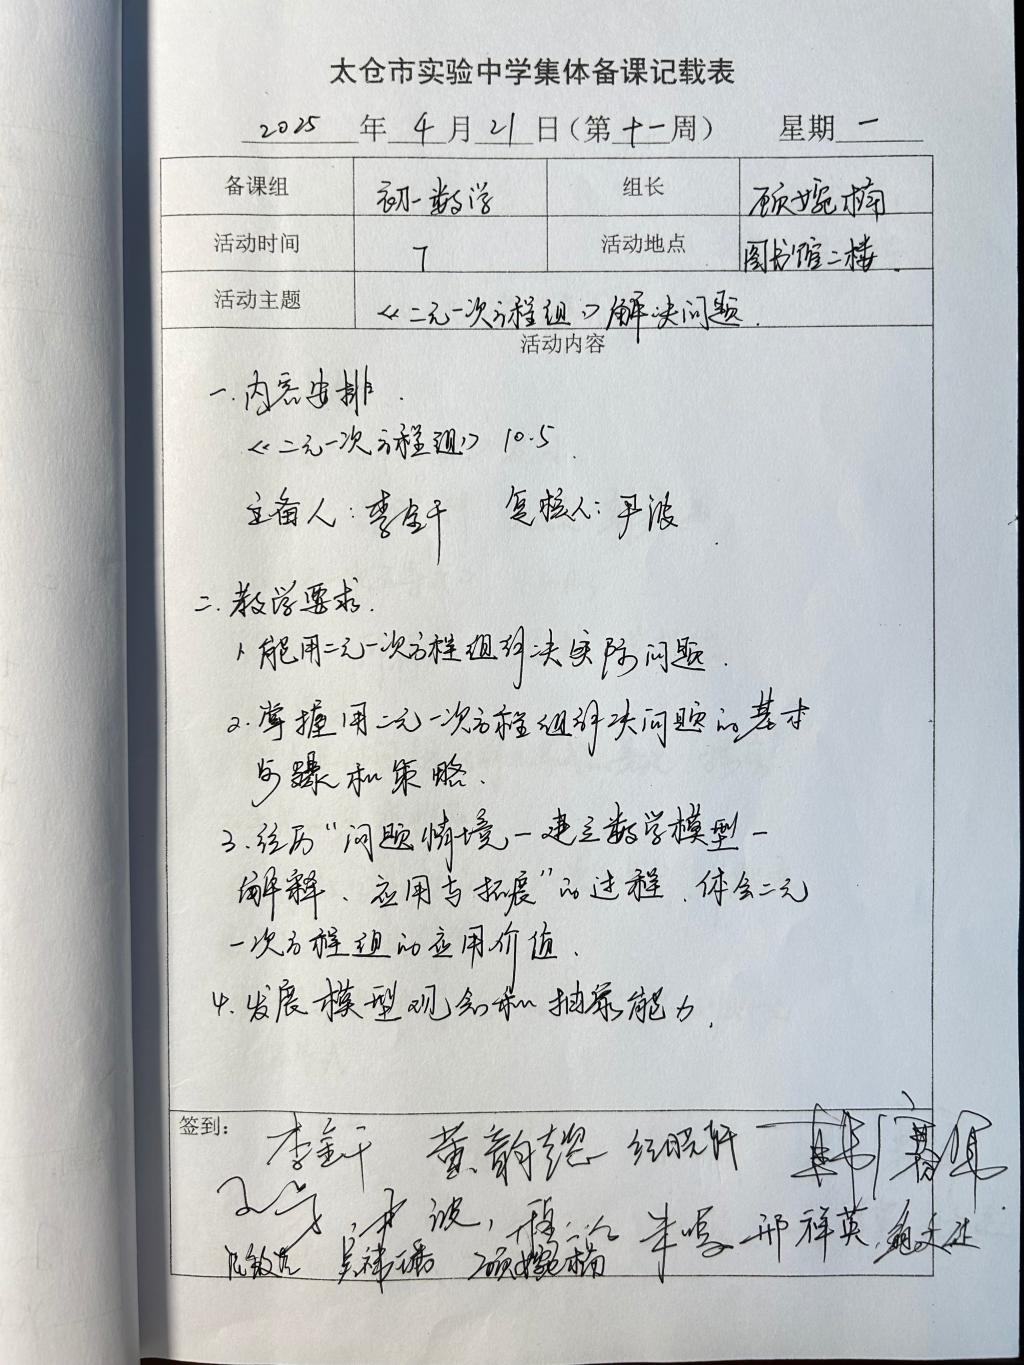 太仓市实验中学集体备课记载表
2025 年 4 月 21 日（第 十一 周） 星期 一
备课组 初一数学 组长 顾婉楠
活动时间 7 活动地点 图书馆二楼.
活动主题 《二元一次方程组》解决问题.
活动内容
一.内容安排.
《二元一次方程组》 10.5
主备人：李金干 复核人：尹波
二.教学要求.
1.能用二元一次方程组解决实际问题.
2.掌握用二元一次方程组解决问题的基本
步骤和策略.
3.经历“问题情境—建立数学模型—
解释、应用与拓展”的过程，体会二元
一次方程组的应用价值.
4.发展模型观念和抽象能力.
签到：
李金干 董韵 晓轩
尹波, 朱 邢祥英
顾婉楠